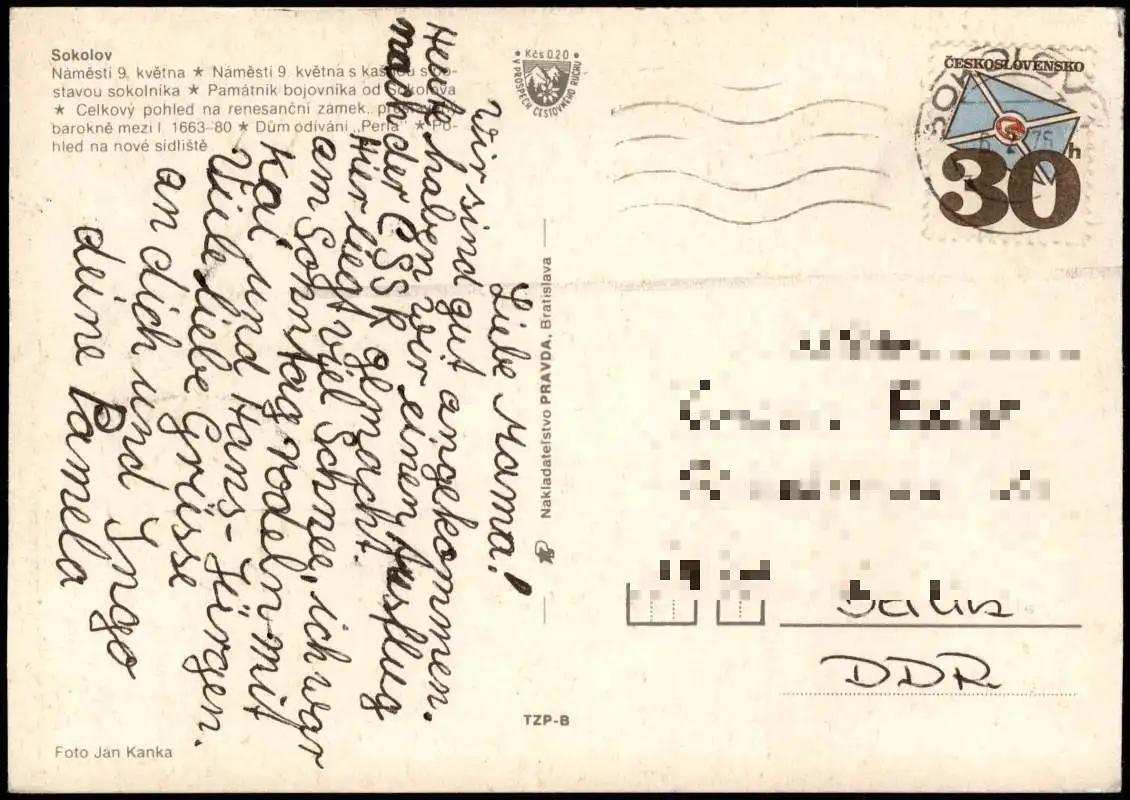 Sokolov
Náměstí 9. května ★ Náměstí 9. května s kašnou s so-
stavou sokolníka ★ Památník bojovníka od Sokolova
★ Celkový pohled na renesanční zámek,
barokně mezi l. 1663–80 ★ Dům odívání „Perla" ★ Po-
hled na nové sídliště
• Kčs 0.20 •
V PROSPĚCH CESTOVNÍHO RUCHU
ČESKOSLOVENSKO
30 h
SOKOLOV
Liebe Mamma!
Wir sind gut angekommen.
Heute haben wir einen Ausflug
nach der ČSSR gemacht.
Hier liegt viel Schnee, ich war
am Sonntag rodeln mit
Kai und Hans-Jürgen.
Viele liebe Grüsse
an dich und Ingo
deine Pamela
Nakladateľstvo PRAVDA, Bratislava
DDR
TZP-B
Foto Ján Kanka